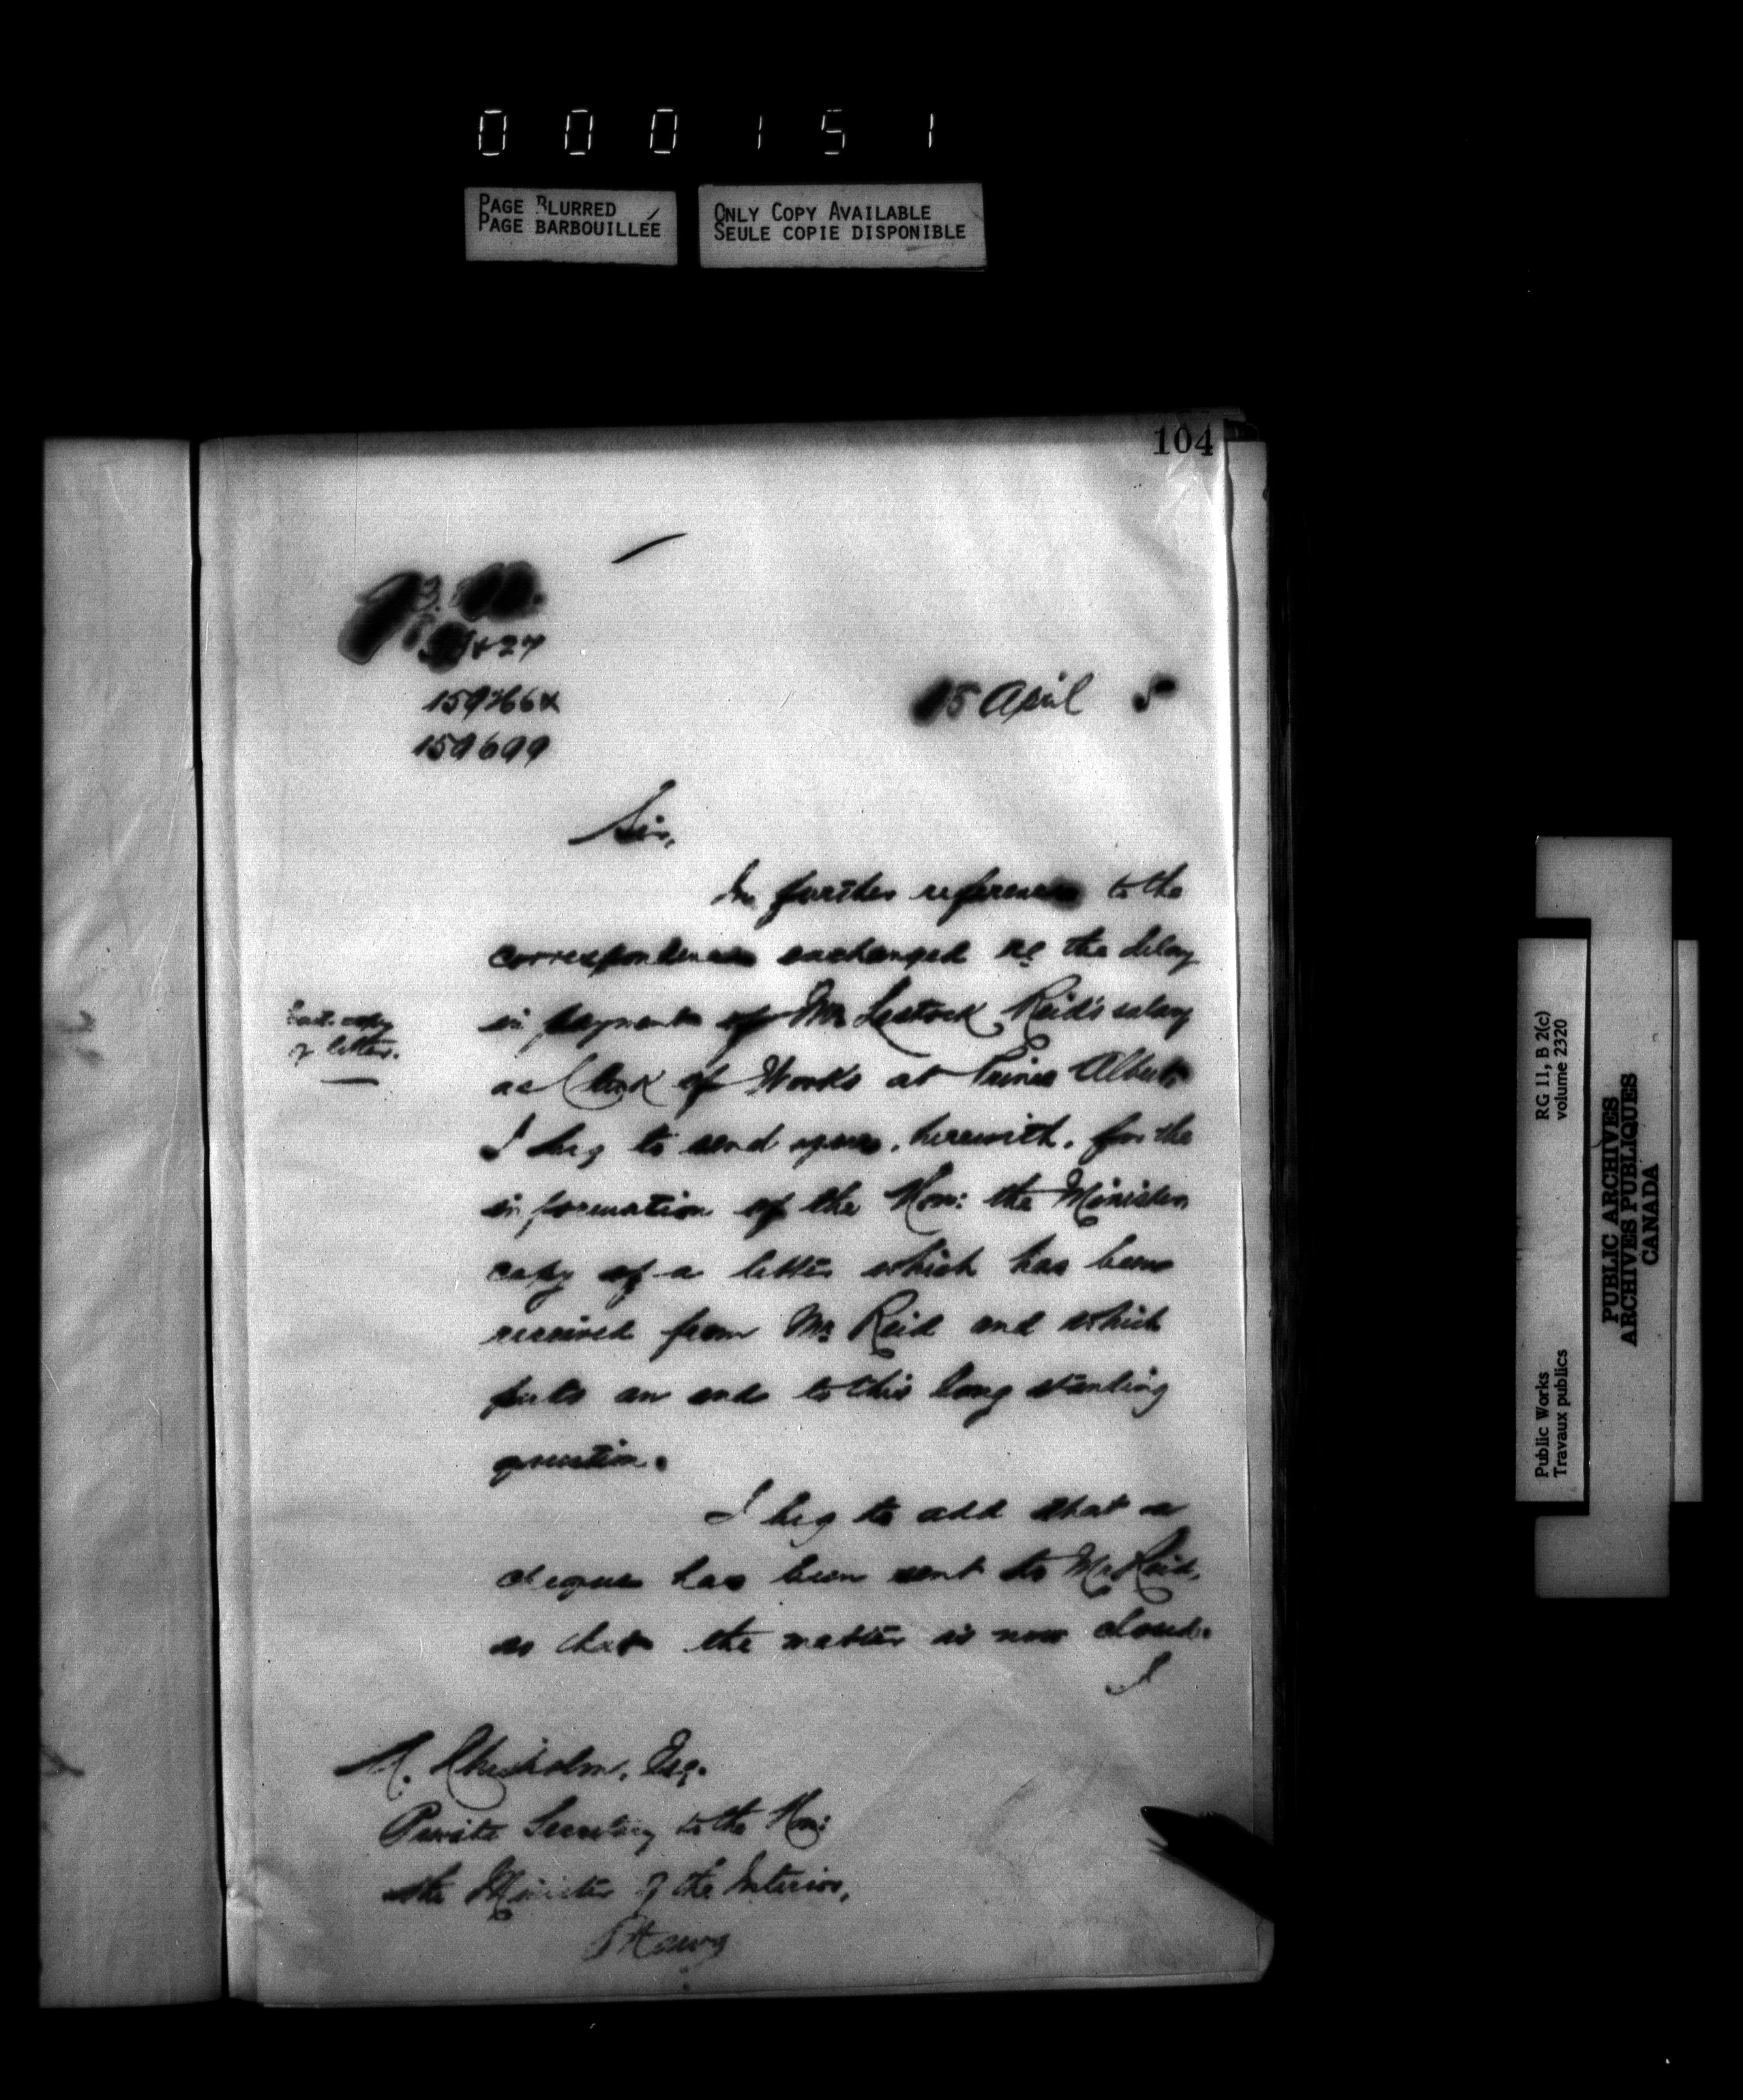 000151
PAGE BLURRED
PAGE BARBOUILLÉE
ONLY COPY AVAILABLE
SEULE COPIE DISPONIBLE
104
159699
15 April 5
Sir,
In further reference to the
correspondence exchanged re the delay
in payment of Mr Lestock Reid's salary
as Clerk of Works at Prince Albert
I beg to send you, herewith, for the
information of the Hon: the Minister
copy of a letter which has been
received from Mr Reid and which
puts an end to this long standing
question.
I beg to add that a
cheque has been sent to Mr Reid,
so that the matter is now closed.
I
copy
of letter.
A. Chisholm, Esq.
Private Secretary to the Hon:
the Minister of the Interior,
Ottawa
Public Works
Travaux publics
RG 11, B 2(c)
volume 2320
PUBLIC ARCHIVES
ARCHIVES PUBLIQUES
CANADA